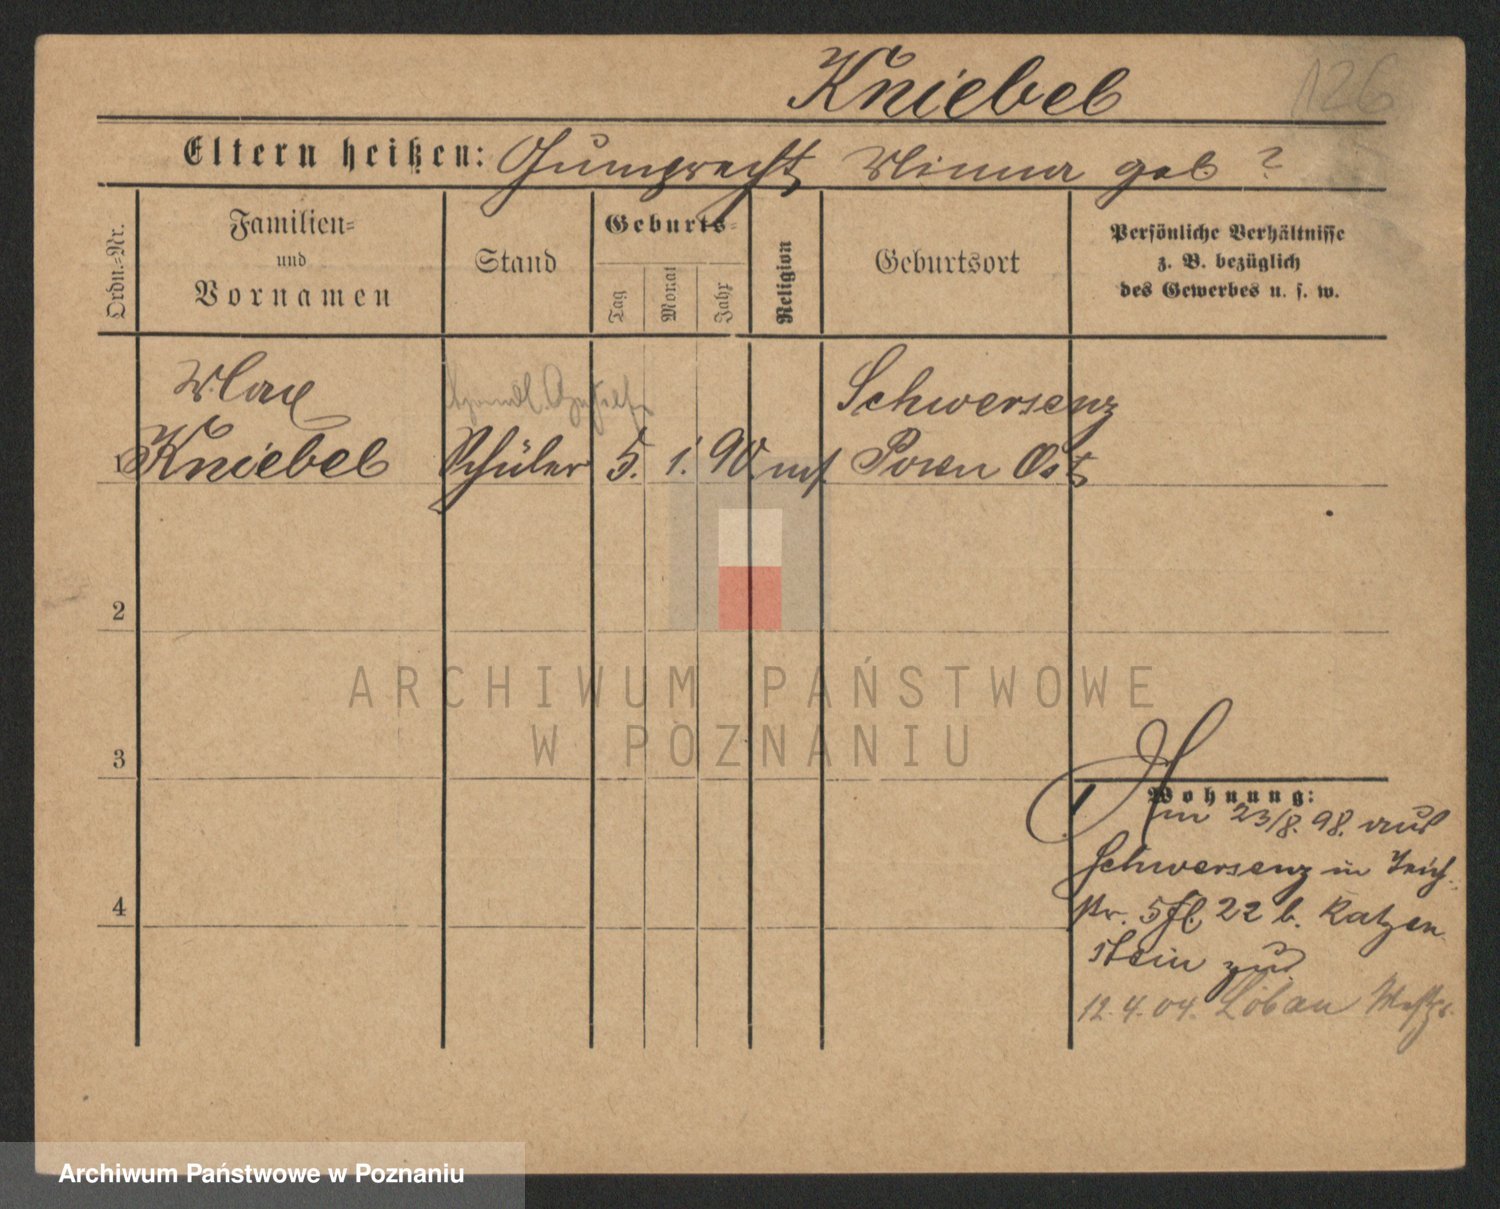 Kniebel
126
Eltern heißen: Gumprecht, Minna geb ?
Ordn.-Nr.
Familien-
und
Vornamen
Stand
Geburts-
Tag
Monat
Jahr
Religion
Geburtsort
Persönliche Verhältnisse
z. B. bezüglich
des Gewerbes u. s. w.
Max
Schwersenz
1 Kniebel Schüler 5. 1. 90. mos. Posen Ost
2
ARCHIWUM PAŃSTWOWE
W POZNANIU
3
Wohnung:
Am 23/8. 98. aus
Schwersenz in
str. 5 22 b. Katzen
stein
12.4.04. Löbau Westpr.
4
Archiwum Państwowe w Poznaniu